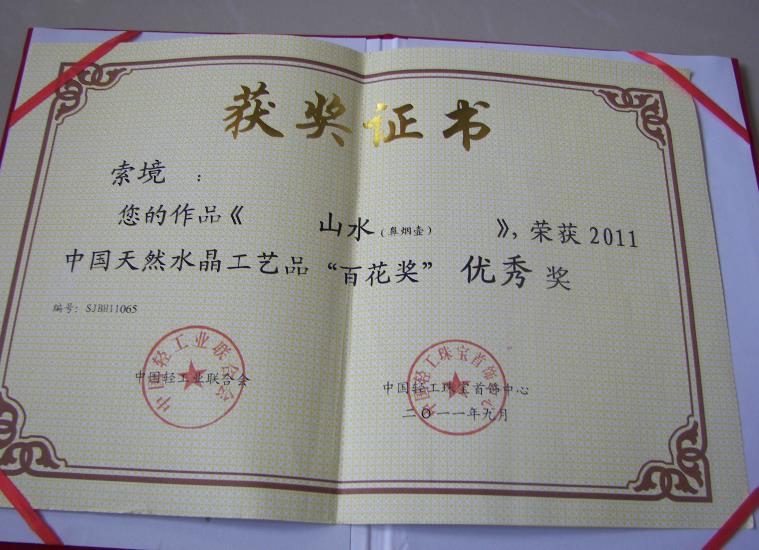 获奖证书
索境：
您的作品《 山水（鼻烟壶） 》，荣获2011
中国天然水晶工艺品“百花奖” 优秀 奖
编号：SJBH11065
中国轻工业联合会
中国轻工业联合会
中国轻工珠宝首饰中心
中国轻工珠宝首饰中心
二〇一一年九月